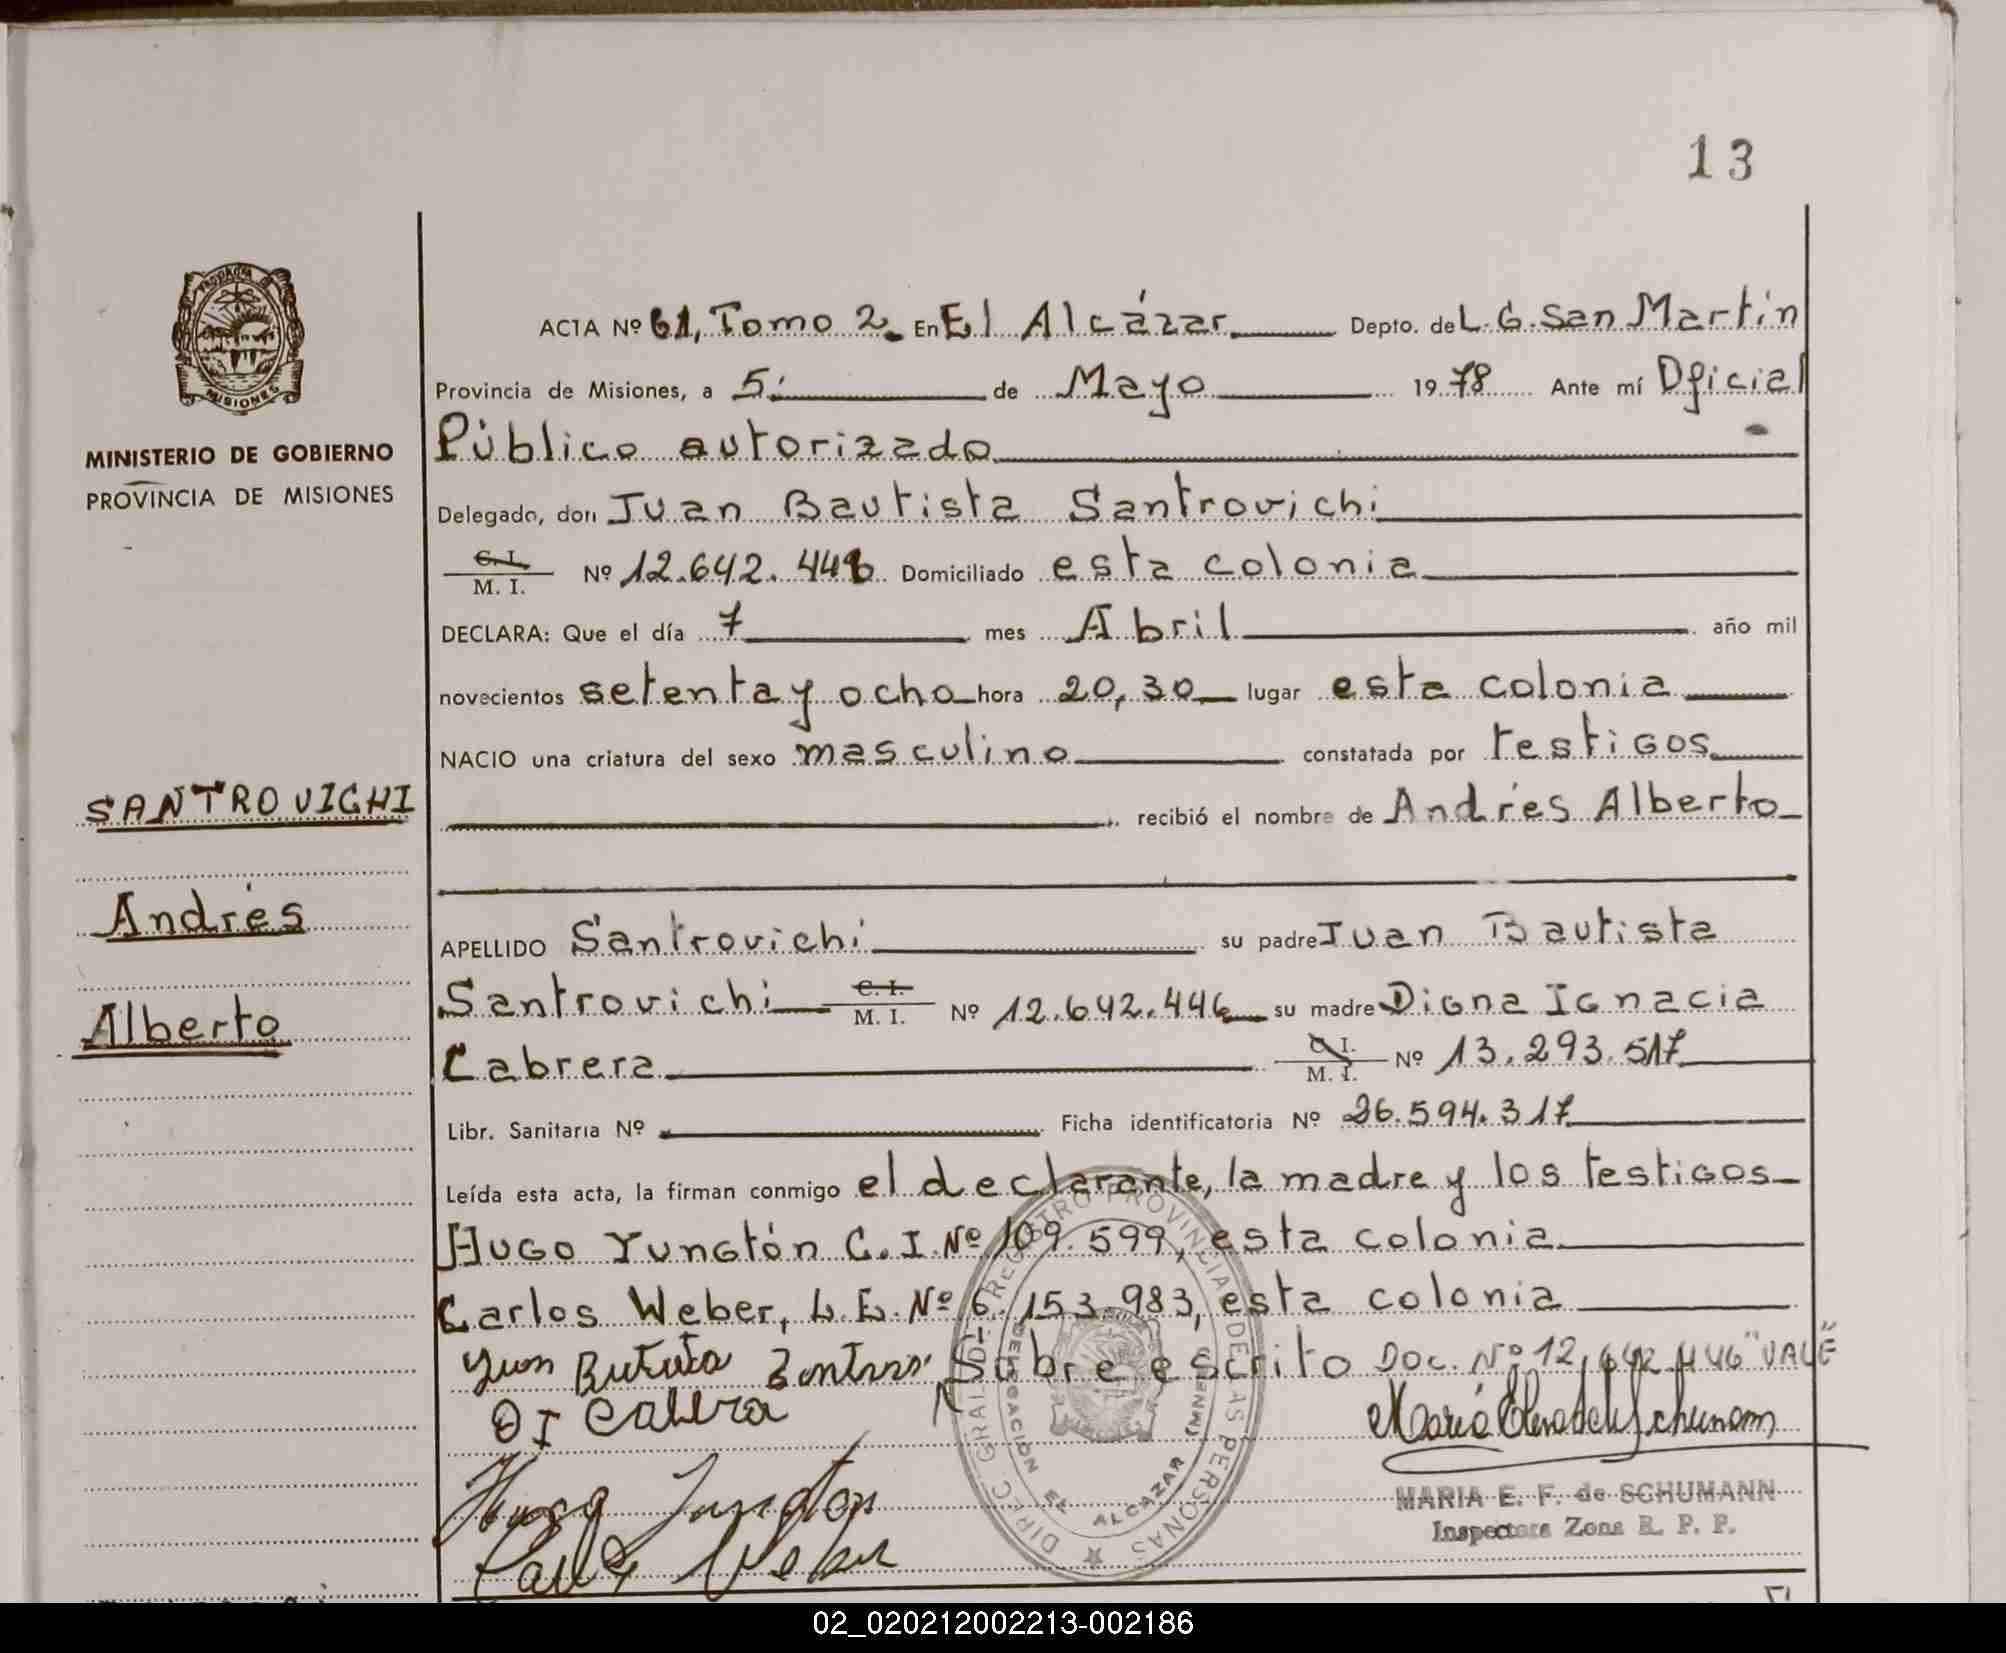 13
PROVINCIA
MISIONES
MINISTERIO DE GOBIERNO
PROVINCIA DE MISIONES
SANTROVICHI
Andrés
Alberto
ACTA Nº 61, Tomo 2. En El Alcázar Depto. de L. G. San Martín
Provincia de Misiones, a 5: de Mayo 1978 Ante mí Oficial
Público autorizado
Delegado, don Juan Bautista Santrovichi
C. I.
M. I. Nº 12.642.446 Domiciliado esta colonia
DECLARA: Que el día 7 mes Abril año mil
novecientos setenta y ocho hora 20,30 lugar esta colonia
NACIO una criatura del sexo masculino constatada por testigos
recibió el nombre de Andrés Alberto
APELLIDO Santrovichi su padre Juan Bautista
Santrovichi C. I. M. I. Nº 12.642.446 su madre Digna Ignacia
Cabrera C. I. M. I. Nº 13.293.517
Libr. Sanitaria Nº Ficha identificatoria Nº 26.594.317
Leída esta acta, la firman conmigo el declarante, la madre y los testigos
Hugo Yungtón C. I. Nº 109.599, esta colonia
Carlos Weber, L. E. Nº 6.153.983, esta colonia
Sobre escrito Doc. Nº 12,642 446 "VALE"
D I Cabrera
Hugo Yungton
Carlos Weber
DIREC. GRAL. DEL REGISTRO PROVINCIAL DE LAS PERSONAS
DELEGACION EL ALCAZAR (MNES.)
MARIA E. F. de SCHUMANN
Inspectora Zona R. P. P.
02_020212002213-002186